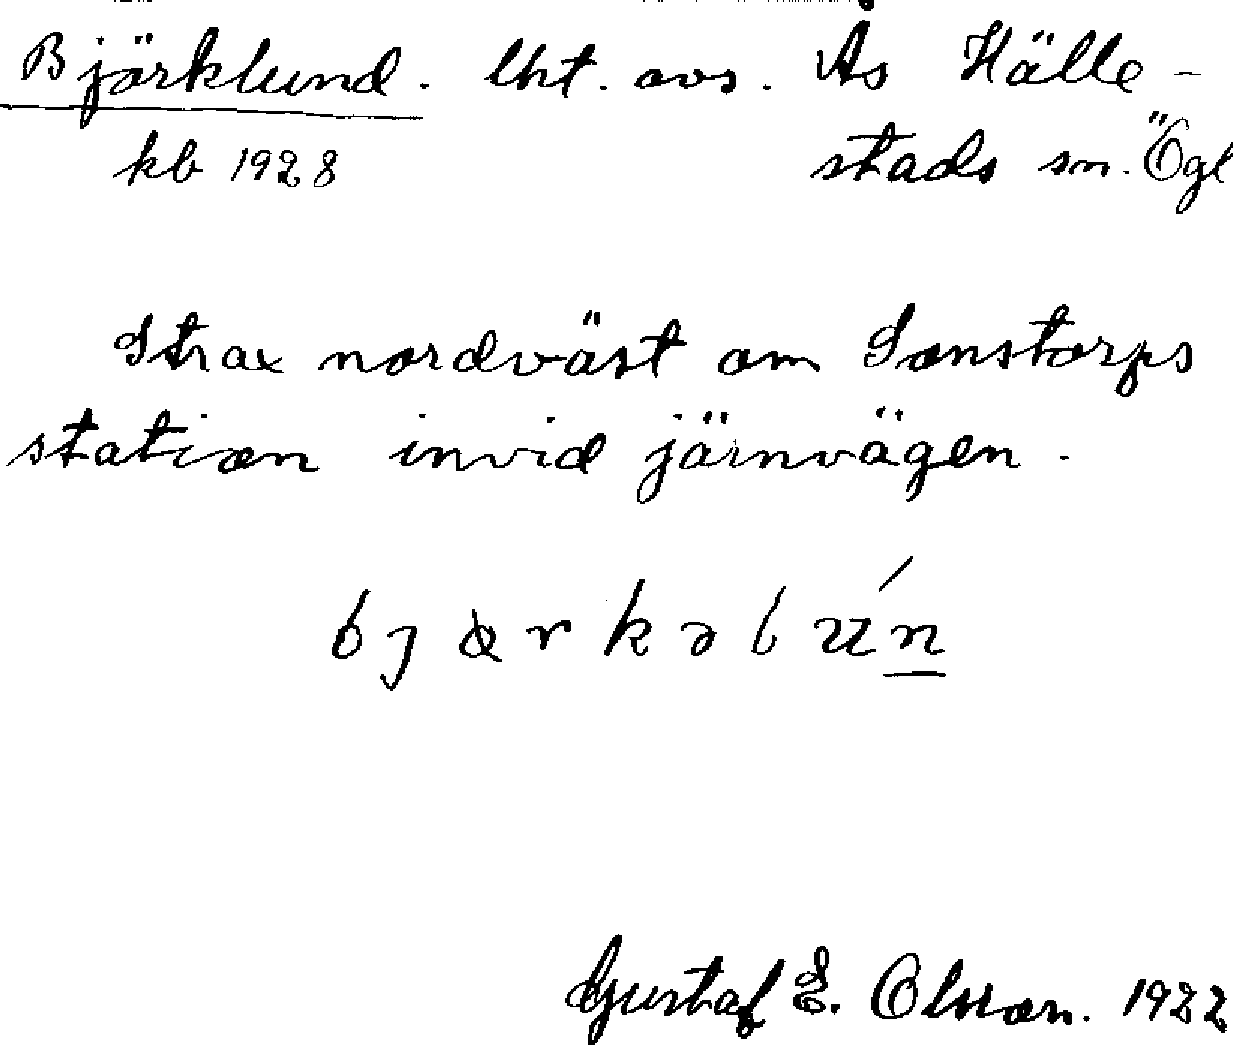 Björklund. lht. avs. Ås Hälle-
kb 1928 stads sn. Ögl
Strax nordväst om Sonstorps
station invid järnvägen.
Gustaf E. Olsson. 1922